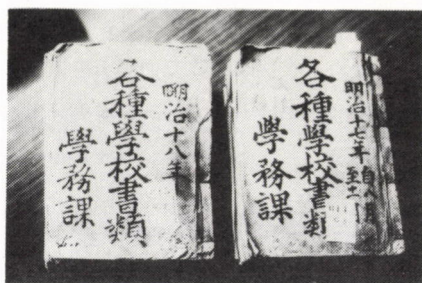 明治十七年
自八月
至十二月
各種學校書類
學務課
明治十八年
各種學校書類
學務課